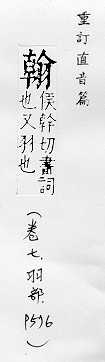 重訂直音篇
翰
侯幹切書詞
也又羽也
(卷七.羽部.
P596)